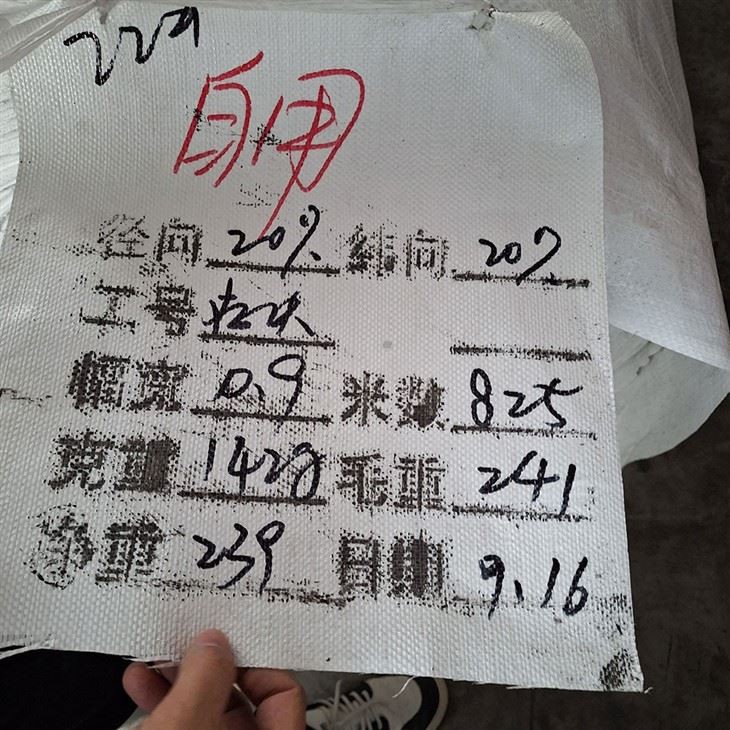 229
自用
径向 207. 纬向 207.
工号
幅宽 0.9 米数 825
克重 142g 毛重 241
净重 239 日期 9.16